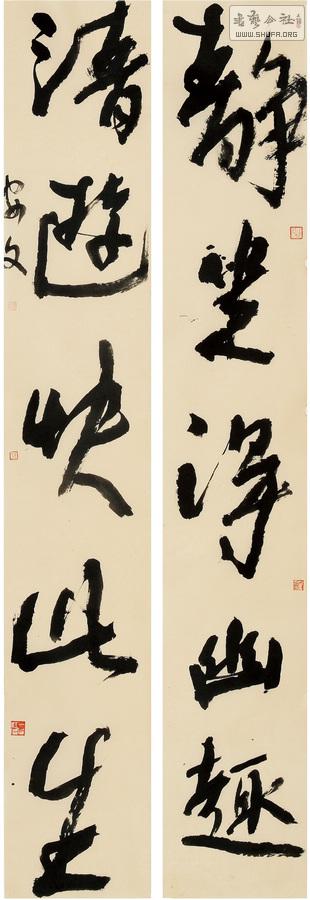 静坐得幽趣
清遊快此生
书艺公社
WWW.SHUFA.ORG